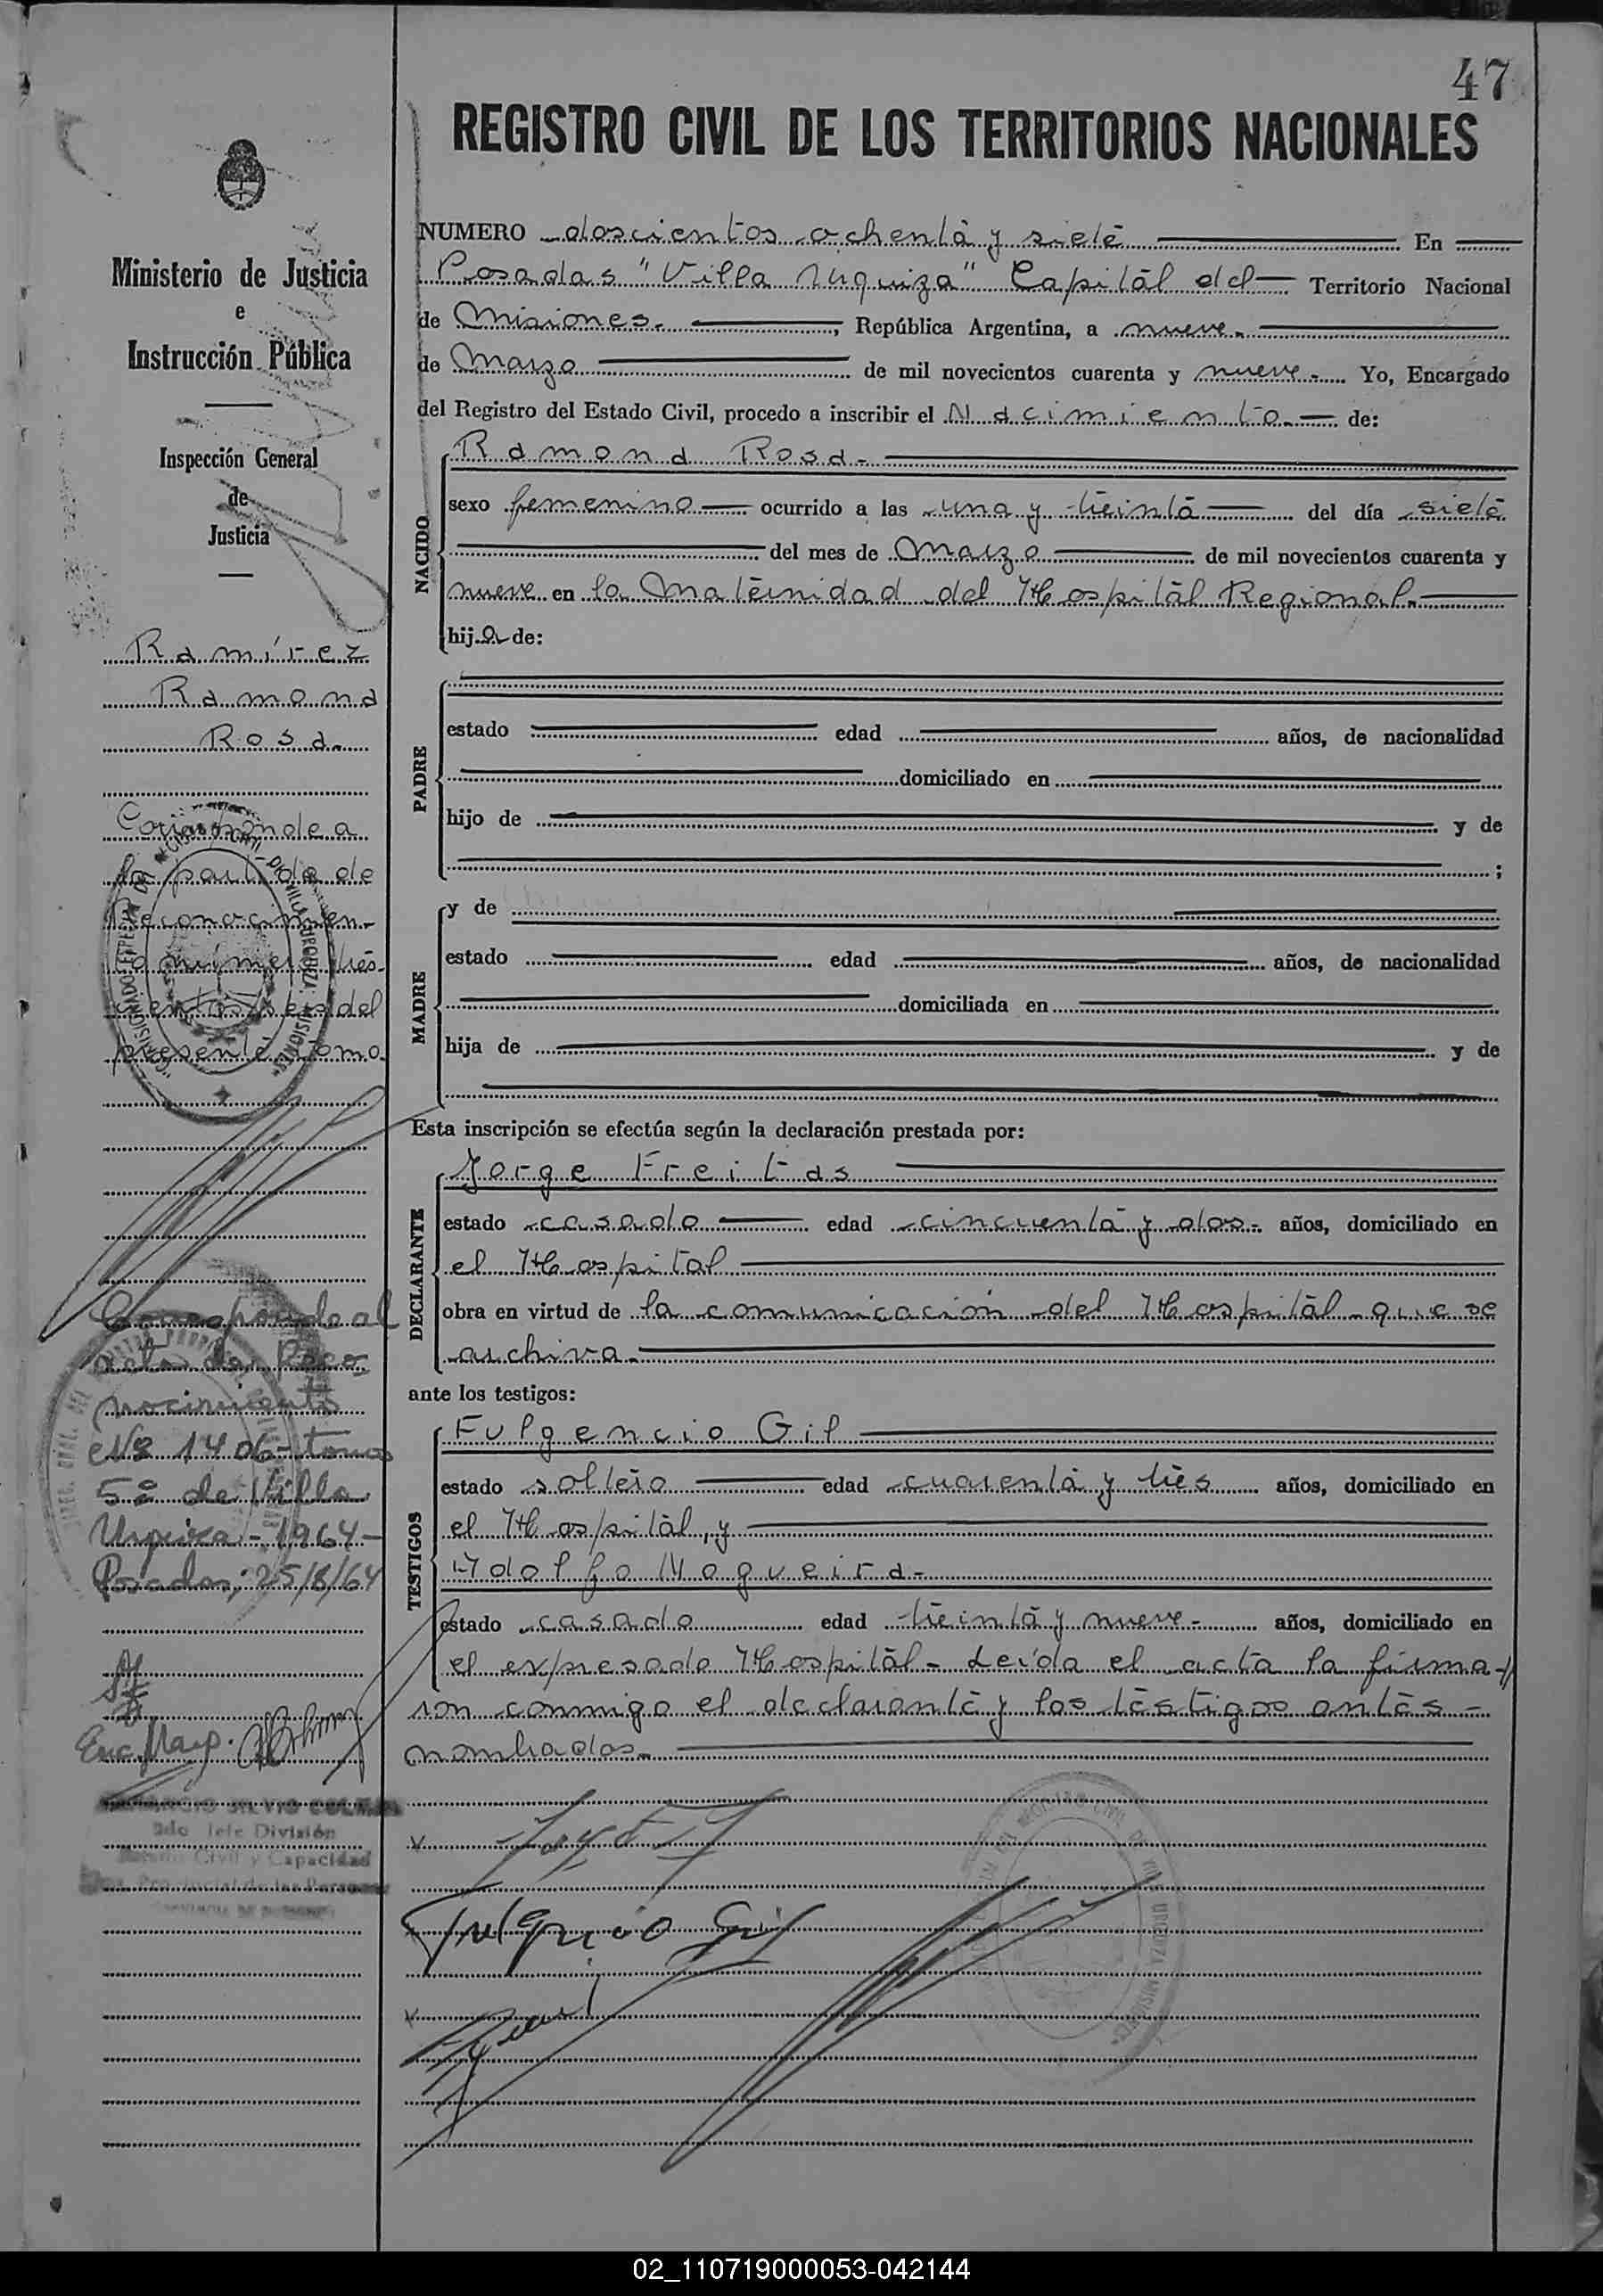 47
REGISTRO CIVIL DE LOS TERRITORIOS NACIONALES
Ministerio de Justicia
e
Instrucción Pública
Inspección General
de
Justicia
Ramírez
Ramona
Rosa.
Corresponde a
la partida de
Reconocimien-
to número tres-
cientos seis del
presente tomo.
Corresponde al
acta de Reco-
nocimiento
Nº 1406 - tomo
5º de Villa
Urquiza - 1964 -
Posadas; 25/8/64
Enc. Marg.
2do Jefe División
Estado Civil y Capacidad
Provincial de las Personas
NUMERO doscientos ochenta y siete En
Posadas "Villa Urquiza" Capital del Territorio Nacional
de Misiones. , República Argentina, a nueve.
de Marzo de mil novecientos cuarenta y nueve. Yo, Encargado
del Registro del Estado Civil, procedo a inscribir el Nacimiento. de:
NACIDO
Ramona Rosa.
sexo femenino ocurrido a las una y treinta del día siete
del mes de Marzo de mil novecientos cuarenta y
nueve en la Maternidad del Hospital Regional.
hija de:
PADRE
estado edad años, de nacionalidad
domiciliado en
hijo de y de
;
MADRE
y de
estado edad años, de nacionalidad
domiciliada en
hija de y de
Esta inscripción se efectúa según la declaración prestada por:
DECLARANTE
Jorge Freitas
estado casado edad cincuenta y dos. años, domiciliado en
el Hospital
obra en virtud de la comunicación del Hospital que se
archiva.
ante los testigos:
TESTIGOS
Fulgencio Gil
estado soltero edad cuarenta y tres años, domiciliado en
el Hospital, y
Adolfo Nogueira.
estado casado edad treinta y nueve. años, domiciliado en
el expresado Hospital. Leída el acta la firma-
ron conmigo el declarante y los testigos antes
nombrados.
Fulgencio Gil
02_110719000053-042144